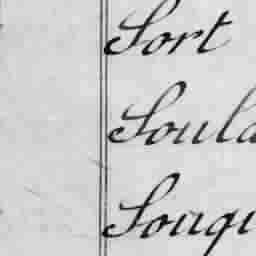 Sort
Soula
Souqu